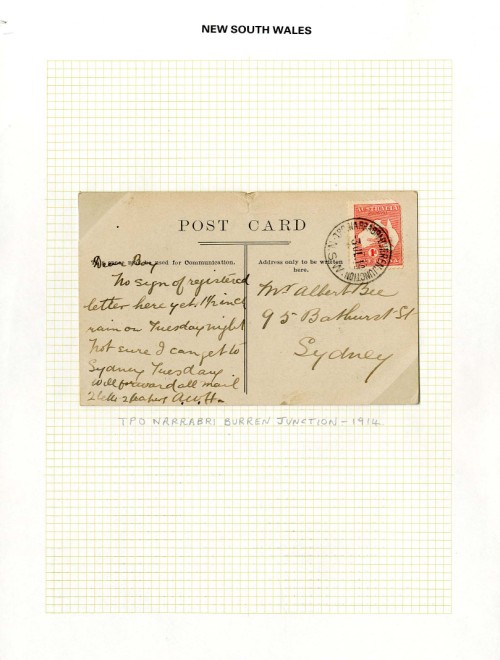 NEW SOUTH WALES
POST CARD
used for Communication.
Address only to be written
here.
Dear Boy
No sign of registered
letter here yet 1½ inch
rain on Tuesday night
Not sure I can get to
Sydney Tuesday
will forward all mail
2 letters 2 papers A.W.H.
Mr Albert Bee
95 Bathurst St
Sydney
TPO NARRABRI BURREN JUNCTION N.S.W.
TPO NARRABRI BURREN JUNCTION - 1914